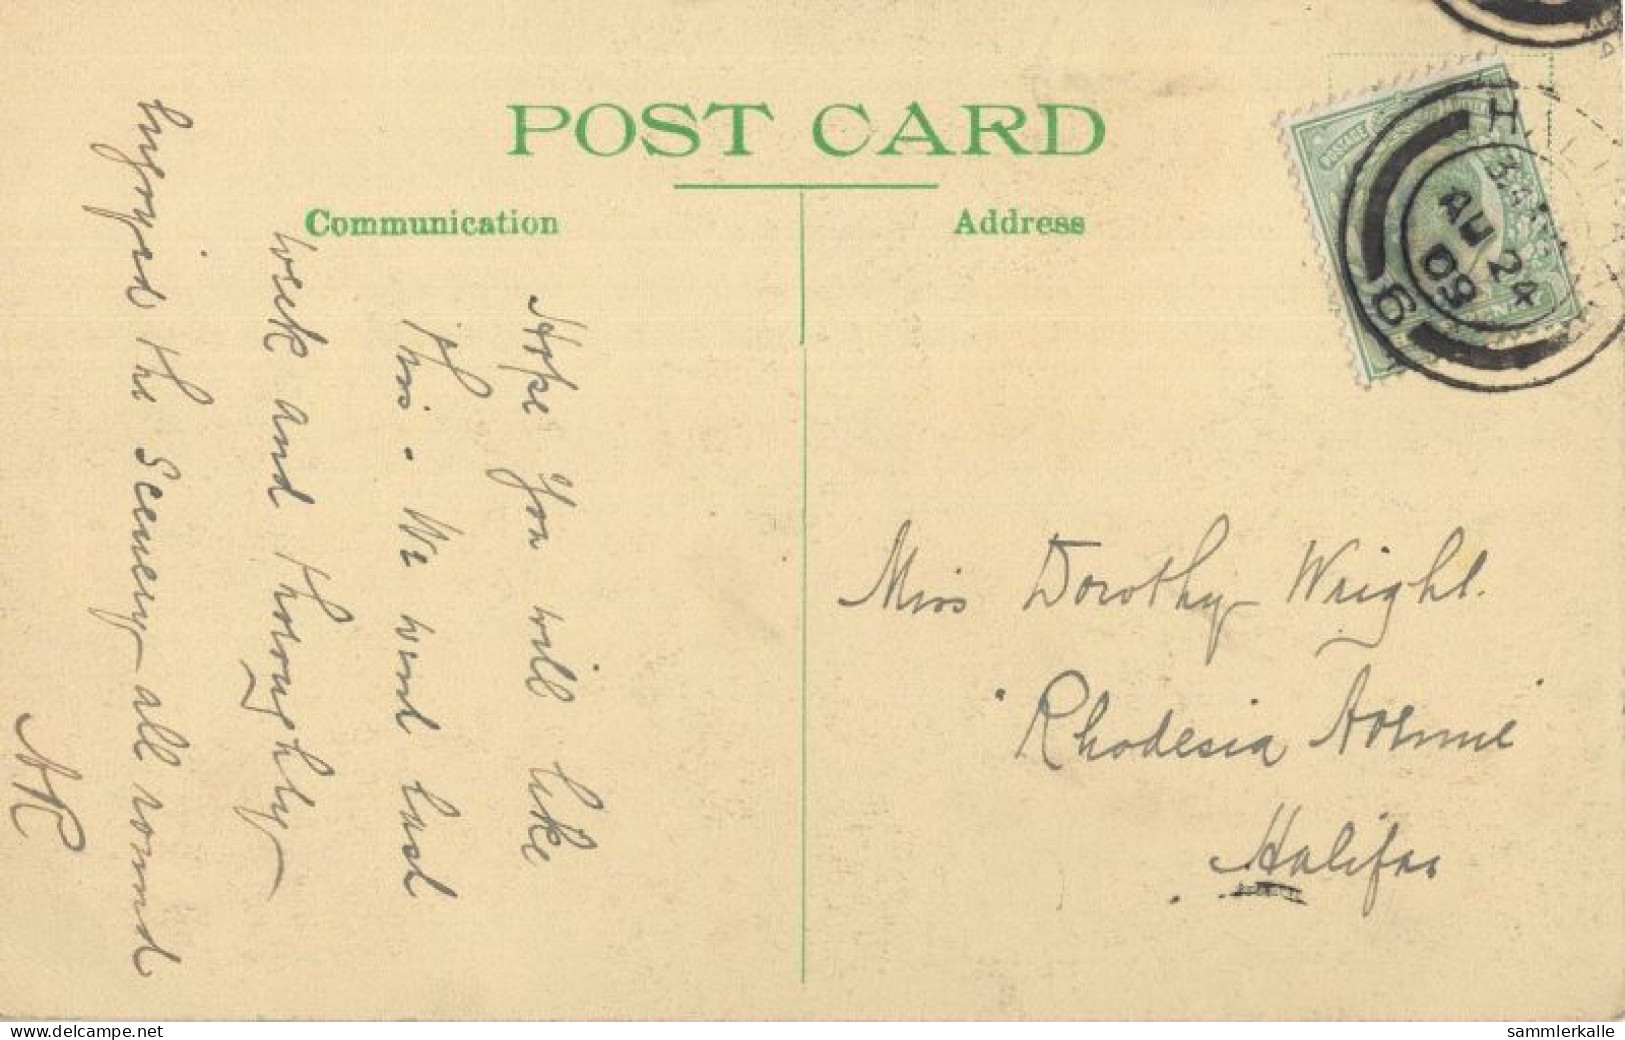 POST CARD
Communication
Address
HALIFAX
AU 24
09
6
POSTAGE
Hope you will like
this. We went last
week and thoroughly
enjoyed the scenery all round
Miss Dorothy Wright.
"Rhodesia Avenue"
Halifax
www.delcampe.net
sammlerkalle